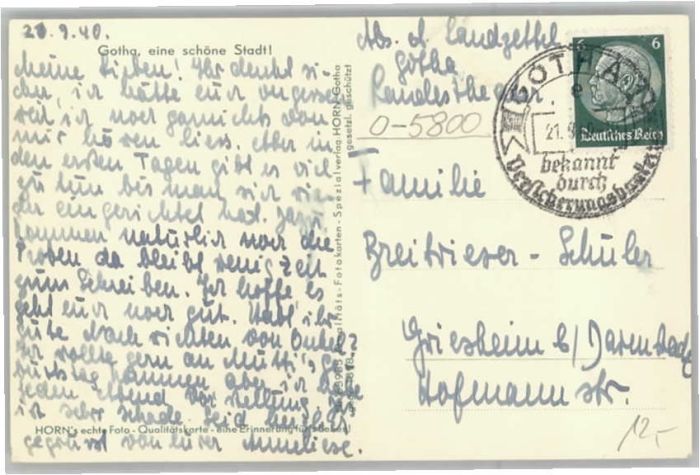 20.9.40.
Gotha, eine schöne Stadt!
Meine Lieben! Ihr denkt si-
cher, ich hätte euch vergessen
weil ich noch garnichts von
mir hören liess. Aber in
den ersten Tagen gibt es viel
zu tun bis man sich wie-
der eingerichtet hat. Jetzt
kommen natürlich noch die
Proben da bleibt wenig Zeit
zum Schreiben. Ich hoffe es
geht euch noch gut. Habt ihr
gute Nachrichten von Onkel?
Ich wollte gern an Mutti's Ge-
burtstag kommen aber ich hab
jeden Abend Vorstellung
ist sehr schade. Seid herzlich
HORN's echte Foto - Qualitätskarte - eine Erinnerung fürs Leben!
gegrüsst von Eurer Anneliese.
HORN Gotha
gesetzl. geschützt
Qualitäts-Fotokarten - Spezialverlag
Abs. A. Landzettel
Gotha
Landestheater
0-5800
6
Deutsches Reich
GOTHA
21.9
bekannt
durch
Versicherungsbanken
Familie
Breitwieser - Schüler
Griesheim b/ Darmstadt
Hofmann str.
12,-